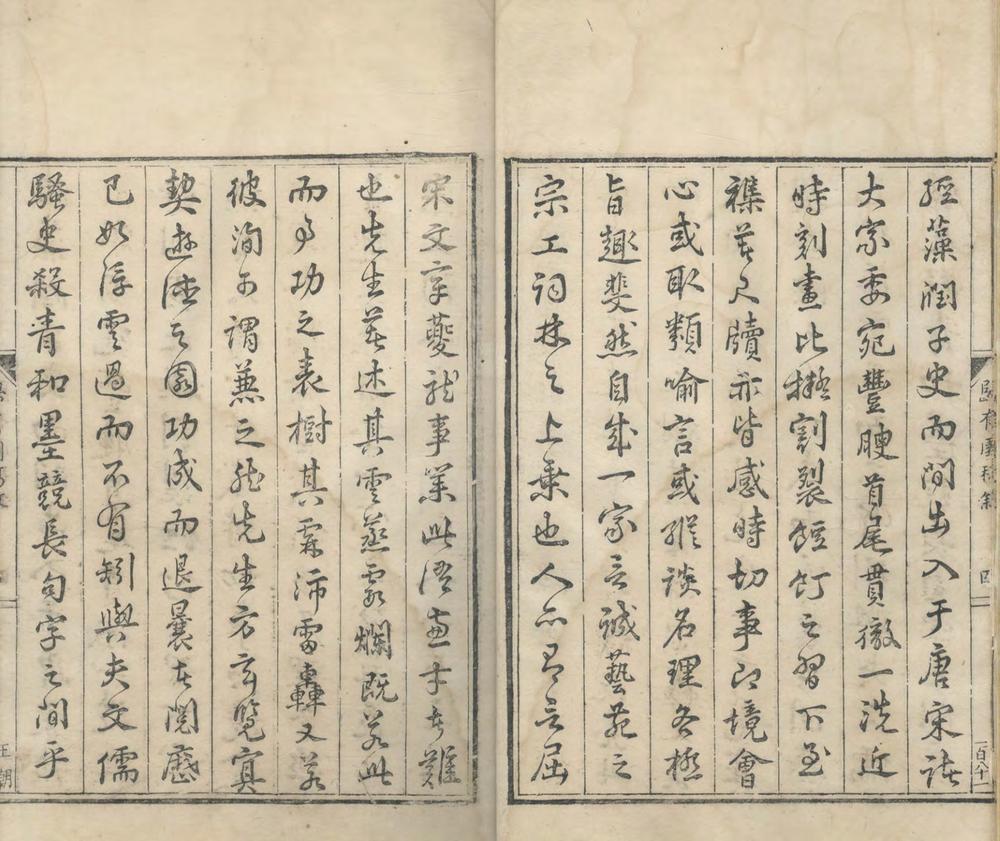 經藻潤子史而間出入于唐宋諸
大家委宛豐腴首尾貫徹一洗近
時刻畫比擬割裂飣之習下至
襍著尺牘亦皆感時切事即境會
心或取類喻言或縱談名理各極
旨趣斐然自成一家言誠藝苑之
宗工詞林之上乘也人亦有言屈
宋文章夔龍事業此語兼才者難
也先生著述其雲蒸霞爛既若此
而事功之表樹其霖沛雷轟又若
彼洵可謂兼之然先生方玄覽冥
契遊德之園功成而退曩在閱歷
已如浮雲過而不有矧與夫文儒
騷史殺青和墨競長句字之間乎